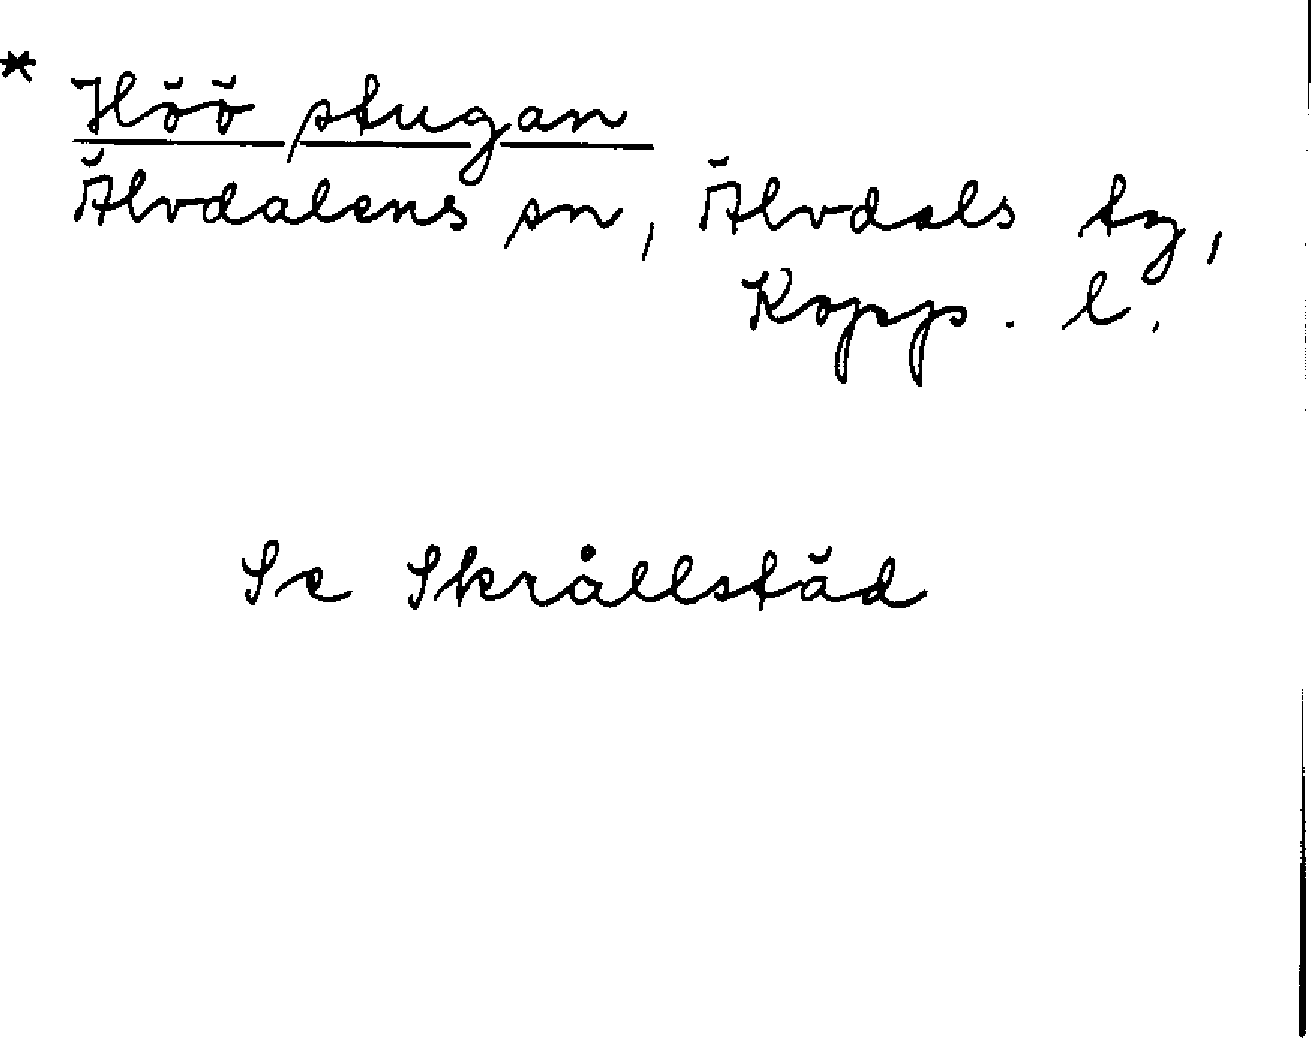 * Höö stugan
Älvdalens sn, Älvdals tg,
Kopp. l.
Se Skrållstäd